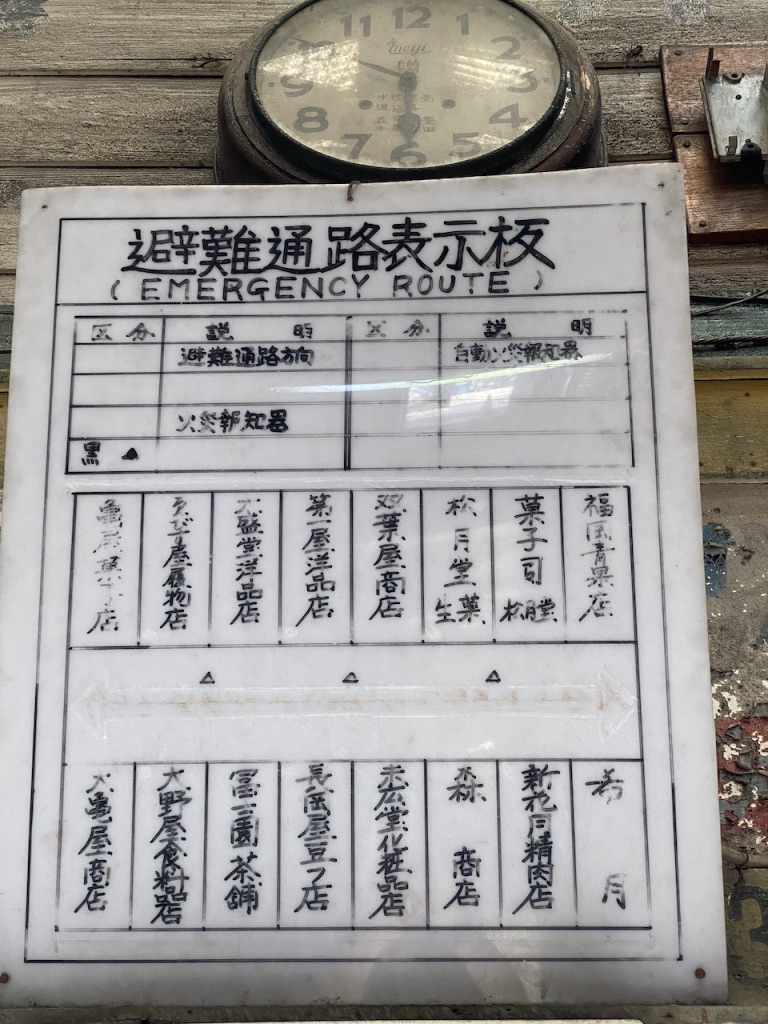 11 12 1
2
9 3
8
7 6 5
meiji
贈
避難通路表示板
(EMERGENCY ROUTE)
区分 説明 区分 説明
避難通路方向 自動火災報知器
火災報知器
黒 △
福岡青果店
菓子司 松月堂
松月堂生菓
双葉屋商店
第一屋洋品店
大盛堂洋品店
ゑびす屋履物店
亀屋菓子店
△ △ △
寿月
新花月精肉店
森商店
末広堂化粧品店
長岡屋豆フ店
冨士園茶舗
大野屋食料品店
大亀屋商店